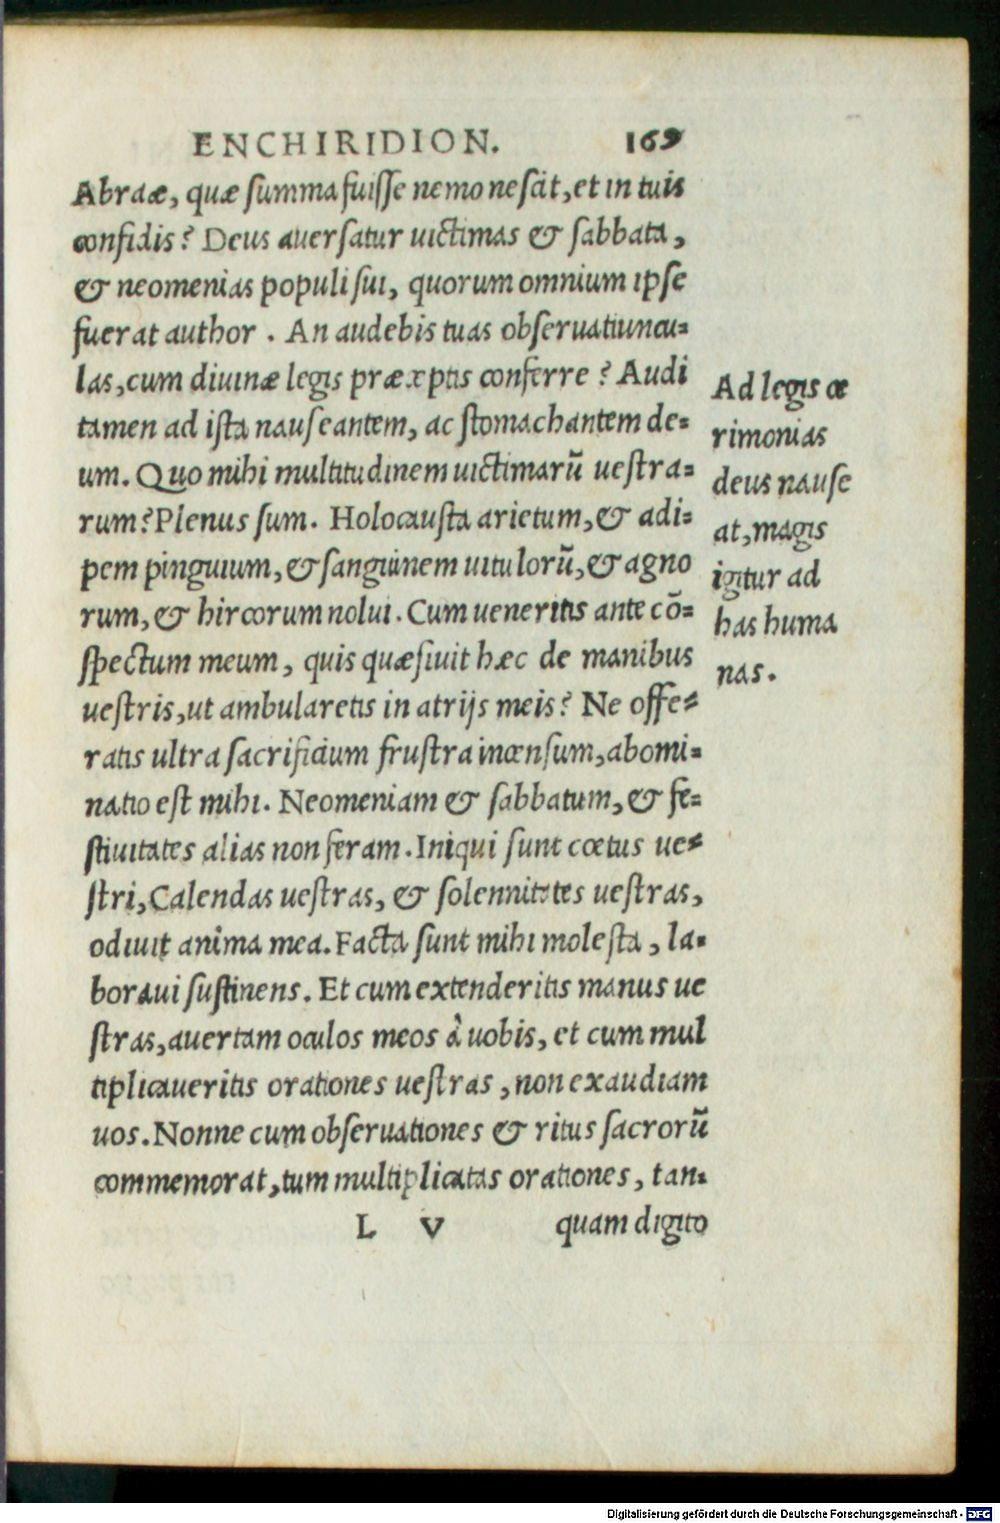 ENCHIRIDION. 169
Abraæ, quæ summa fuisse nemo nescit, et in tuis
confidis? Deus auersatur uictimas & sabbata,
& neomenias populi sui, quorum omnium ipse
fuerat author. An audebis tuas obseruatiuncu=
las, cum diuinæ legis præceptis conferre? Audi
tamen ad ista nauseantem, ac stomachantem de=
um. Quo mihi multitudinem uictimarū uestra=
rum? Plenus sum. Holocausta arietum, & adi=
pem pinguium, & sanguinem uitulorū, & agno
rum, & hircorum nolui. Cum ueneritis ante cō=
spectum meum, quis quæsiuit hæc de manibus
uestris, ut ambularetis in atrijs meis? Ne offe=
ratis ultra sacrificium frustra incensum, abomi=
natio est mihi. Neomeniam & sabbatum, & fe=
stiuitates alias non feram. Iniqui sunt cœtus ue=
stri, Calendas uestras, & solennitates uestras,
odiuit anima mea. Facta sunt mihi molesta, la=
boraui sustinens. Et cum extenderitis manus ue
stras, auertam oculos meos à uobis, et cum mul
tiplicaueritis orationes uestras, non exaudiam
uos. Nonne cum obseruationes & ritus sacrorū
commemorat, tum multiplicatas orationes, tan=
L V quam digito
Ad legis ce
rimonias
deus nause
at, magis
igitur ad
has huma
nas.
Digitalisierung gefördert durch die Deutsche Forschungsgemeinschaft - DFG